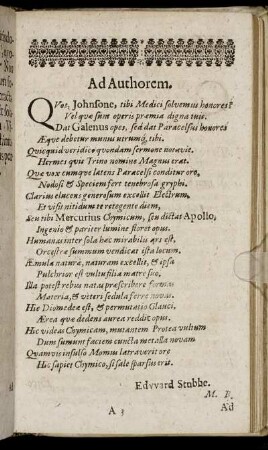 Ad Authorem.
QVos, Johnsone, tibi Medici solvemus honores?
Vel quæ sunt operis præmia digna tuis.
Dat Galenus opes, sed dat Paracelsus honores
Æque debetur munus utrumq, tibi.
Quicquid veridico quondam sermone notavit,
Hermes qui Trino nomine Magnus erat.
Quæ vox cumque latens Paracelsi conditur ore,
Nodosi & Speciem fert tenebrosa gryphi.
Clarius elucens generosum excellit Electrum,
Et visu nitidum te retegente diem,
Seu tibi Mercurius Chymicum, seu dictas Apollo,
Ingenio & pariter lumine floret opus.
Humanas inter sola hæc mirabilis ars est,
Orcestræ summum vendicat ista locum,
Æmula naturæ, naturam excellit, & ipsa
Pulchrior est vultu filia matre suo,
Illa potest rebus natu præscribere formas
Materia, & veteri sedula ferre novas.
Hic Diomedea est, & permutatio Glauci,
Ærea quæ dedeni aurea reddit opus.
Hic videas Chymicam, mutantem Protea vultum
Dum sumunt faciem cuncta metalla novam
Quamvis insulso Momus latraverit ore
Hic sapiet Chymico, si sale sparsus erit.
Edvvard Stubbe.
M. D.
A 3
Ad